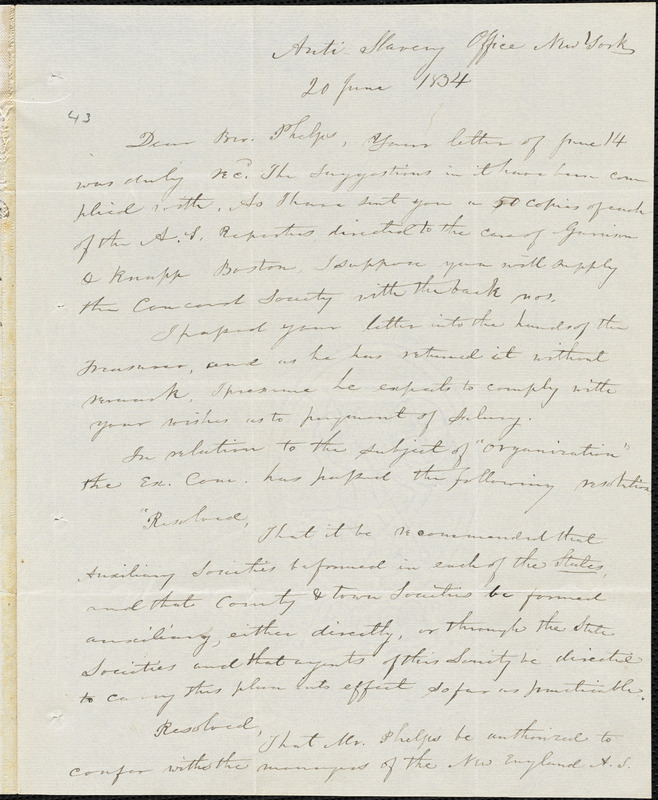 Anti-Slavery Office New York
20 June 1834
43
Dear Bro. Phelps, Your letter of June 14
was duly recd. The suggestions in it have been com
plied with. As I have sent you a 50 copies of each
of the A.S. Reporter directed to the care of Garrison
& Knapp Boston, I suppose you will supply
the Concord Society with the back nos.
I passed your letter into the hands of the
Treasurer, and as he has returned it without
remark, I presume he expects to comply with
your wishes as to payment of salary.
In relation to the subject of "organization"
the Ex. Com. has passed the following resolution
"Resolved,
That it be recommended that
Auxiliary Societies be formed in each of the States,
and that County & town Societies be formed
auxiliary, either directly, or through the State
Societies and that agents of this Society be directed
to carry this plan into effect so far as practicable.
Resolved,
That Mr. Phelps be authorized to
confer with the managers of the New England A.S.